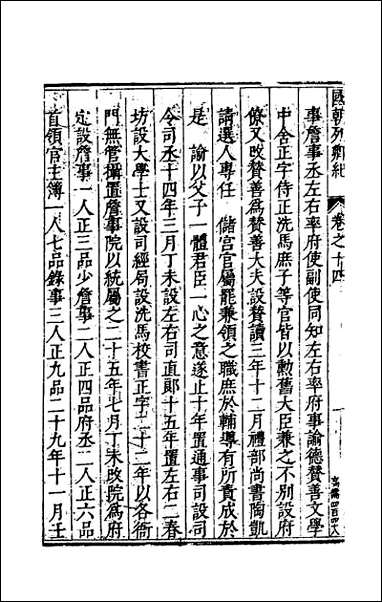 國朝列卿紀　卷之十四
事詹事丞左右率府使副使同知左右率府事諭德贊善文學
中舍正字侍正洗馬庶子等官皆以勲舊大臣兼之不別設府
僚又改贊善爲贊善大夫設贊讀三年十二月禮部尚書陶凱
請選人專任　儲宮官屬罷兼領之職庶於輔導有所責成於
是　諭以父子一體君臣一心之意遂止十年置通事司設司
令司丞十四年三月丁未設左右司直郎十五年置左右二春
坊設大學士又設司經局設洗馬校書正字二十二年以各衙
門無管攝置詹事院以統屬之二十五年七月丁未改院爲府
定設詹事一人正三品少詹事二人正四品府丞二人正六品
首領官主簿一人七品錄事三人正九品二十九年十一月壬